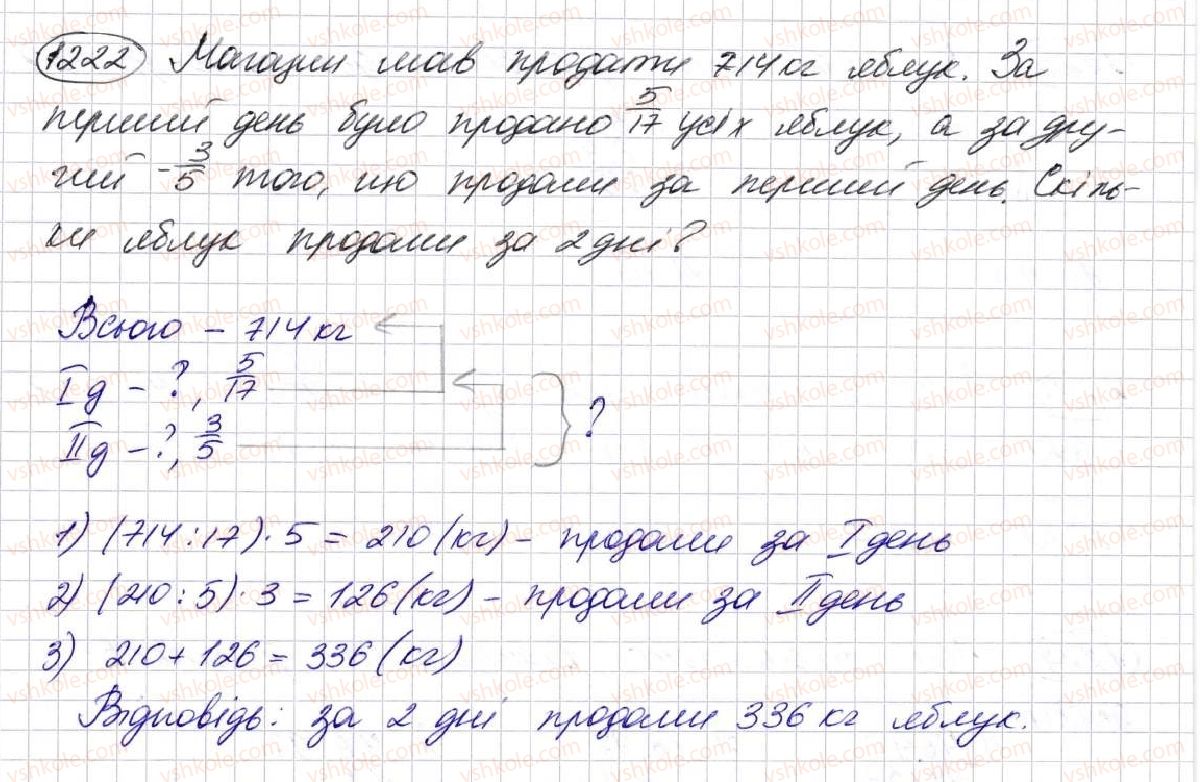 1222 Магазин мав продати 714 кг яблук. За
перший день було продано 5/17 усіх яблук, а за дру-
гий - 3/5 того, що продали за перший день. Скіль-
ки яблук продали за 2 дні?
Всього – 714 кг
I д – ?, 5/17
II д – ?, 3/5
?
1) (714 : 17) · 5 = 210 (кг) – продали за I день
2) (210 : 5) · 3 = 126 (кг) – продали за II день
3) 210 + 126 = 336 (кг)
Відповідь: за 2 дні продали 336 кг яблук.
vshkole.com